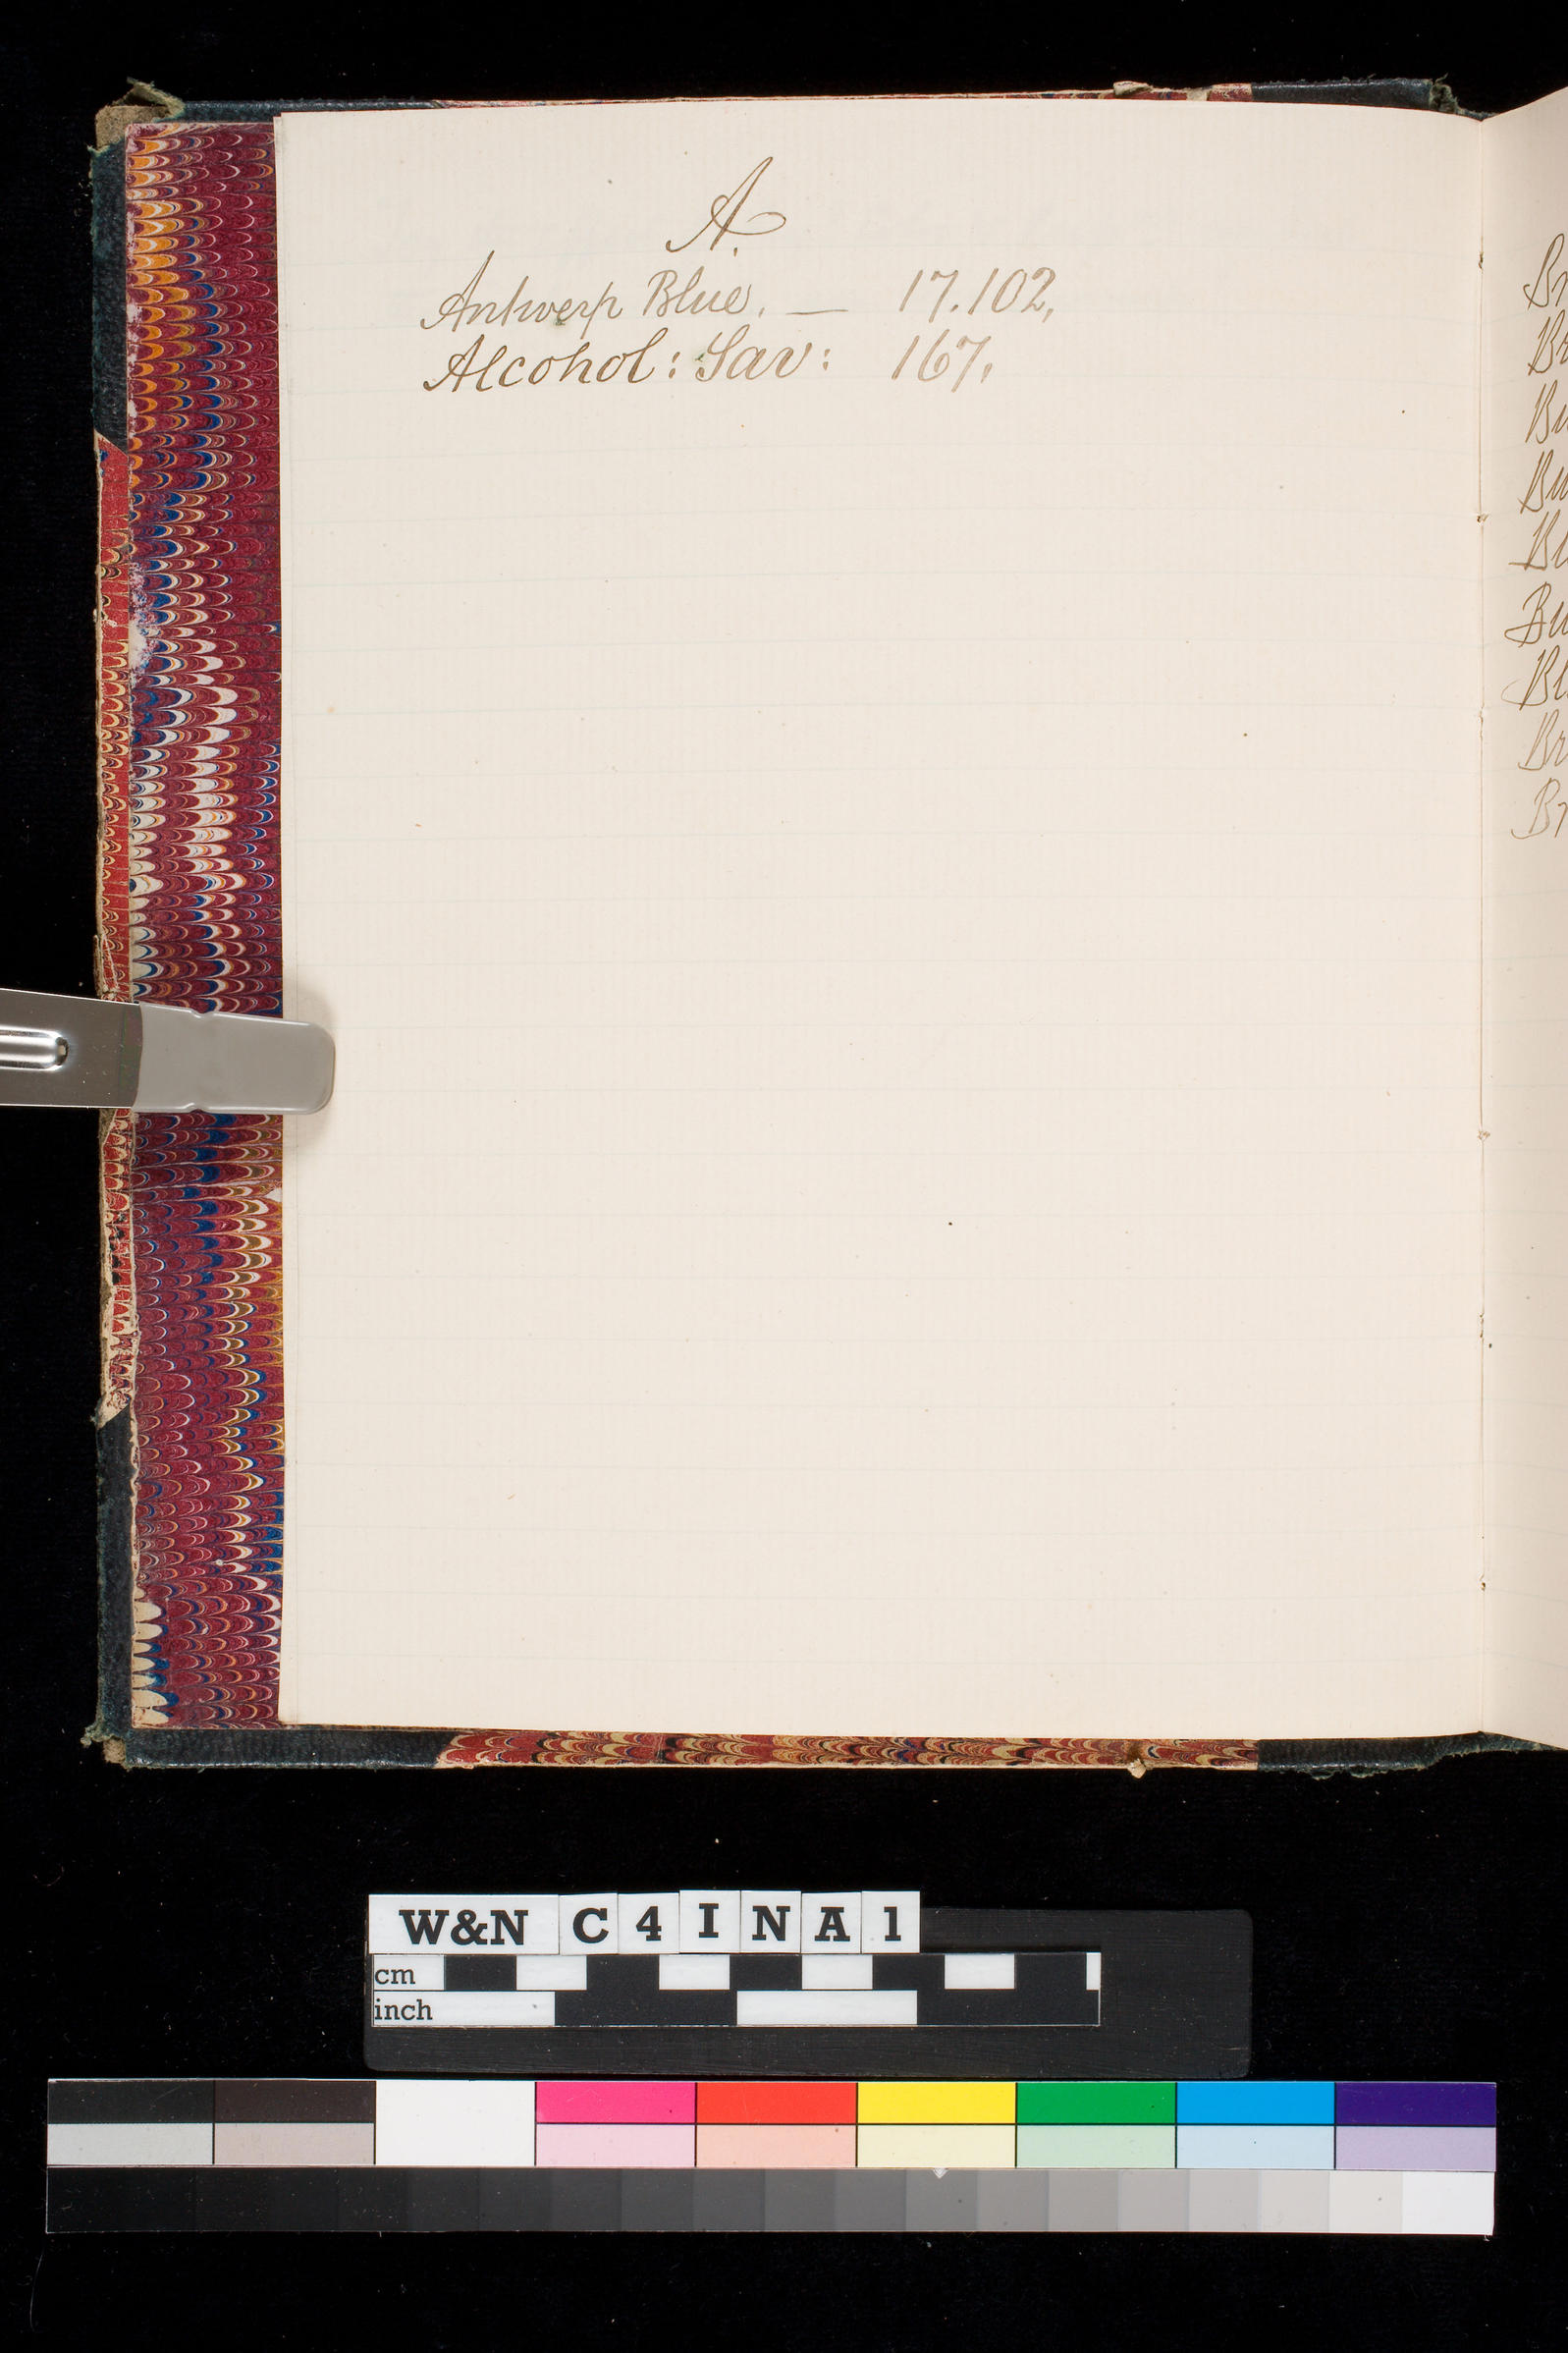 A.
Antwerp Blue. — 17.102,
Alcohol: Sav: 167,
Br
Br
Bu
Bu
Bl
Bu
Bl
Br
Br
W&N C 4 I N A 1
cm
inch